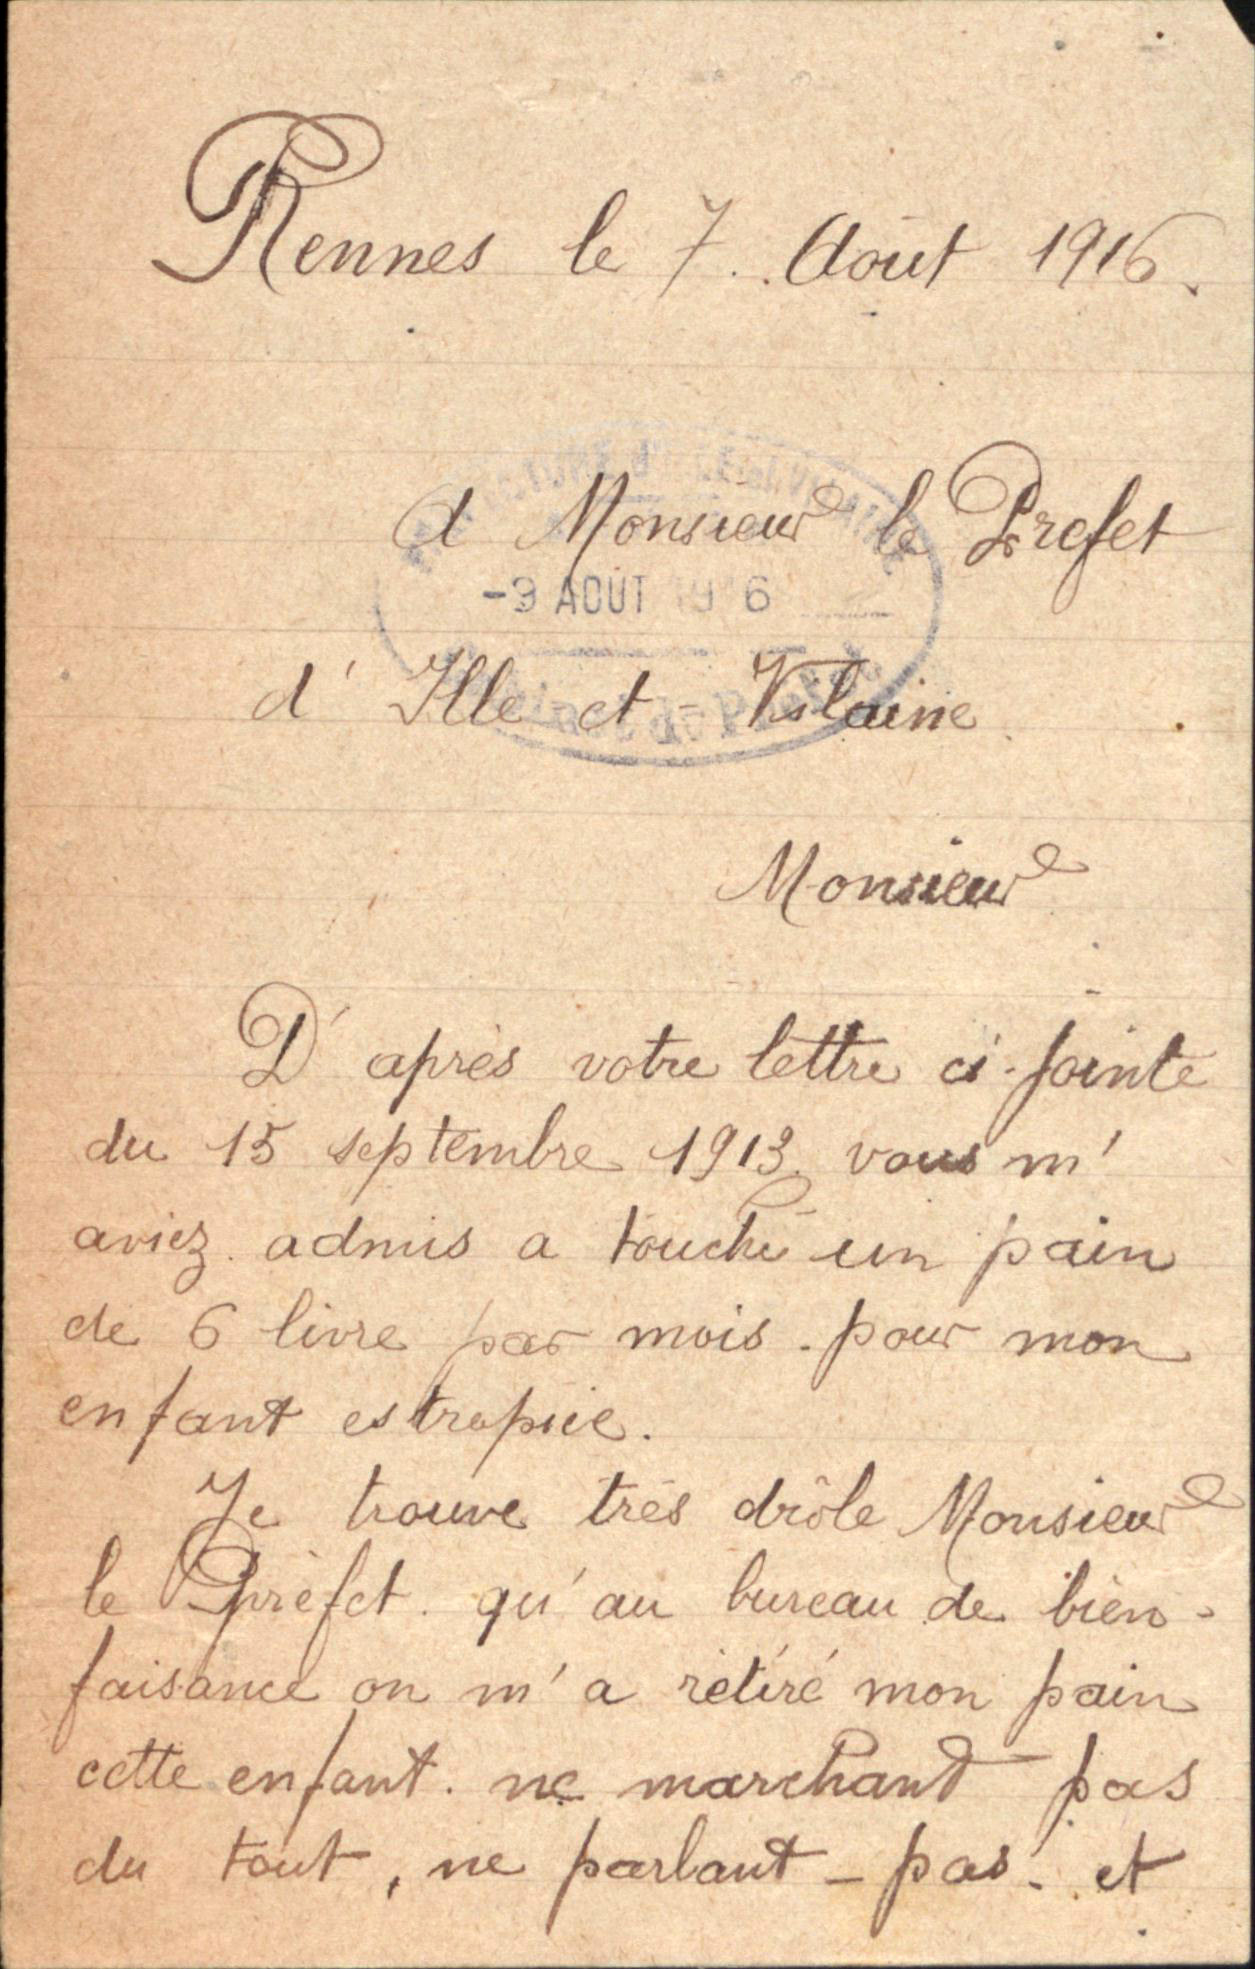 Rennes le 7. Août 1916.
A Monsieur le Préfet
-9 AOUT 1916
d' Ille-et-Vilaine
Monsieur
D' aprés votre lettre ci-jointe
du 15 septembre 1913. vous m'
aviez admis a touché un pain
de 6 livre par mois. pour mon
enfant estropiée.
Je trouve très drôle Monsieur
le Préfet. qu'au bureau de bien-
faisance on m'a rétiré mon pain
cette enfant. ne marchand pas
du tout, ne parlant - pas. et